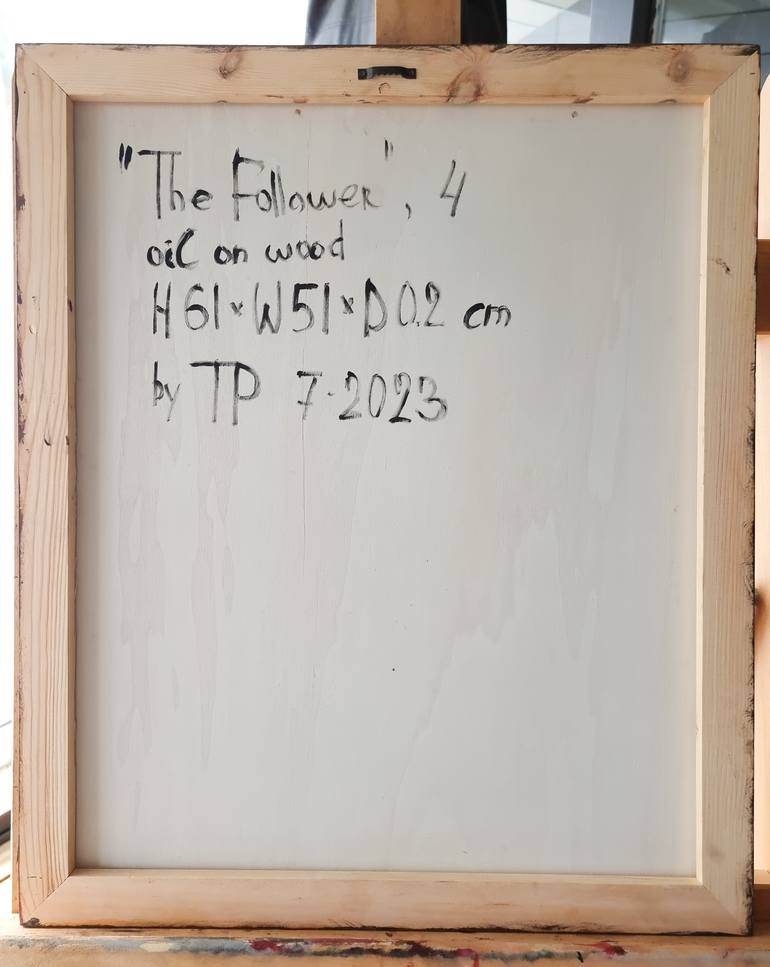 "The Follower", 4
oil on wood
H 61 x W 51 x D 0.2 cm
by TP 7.2023